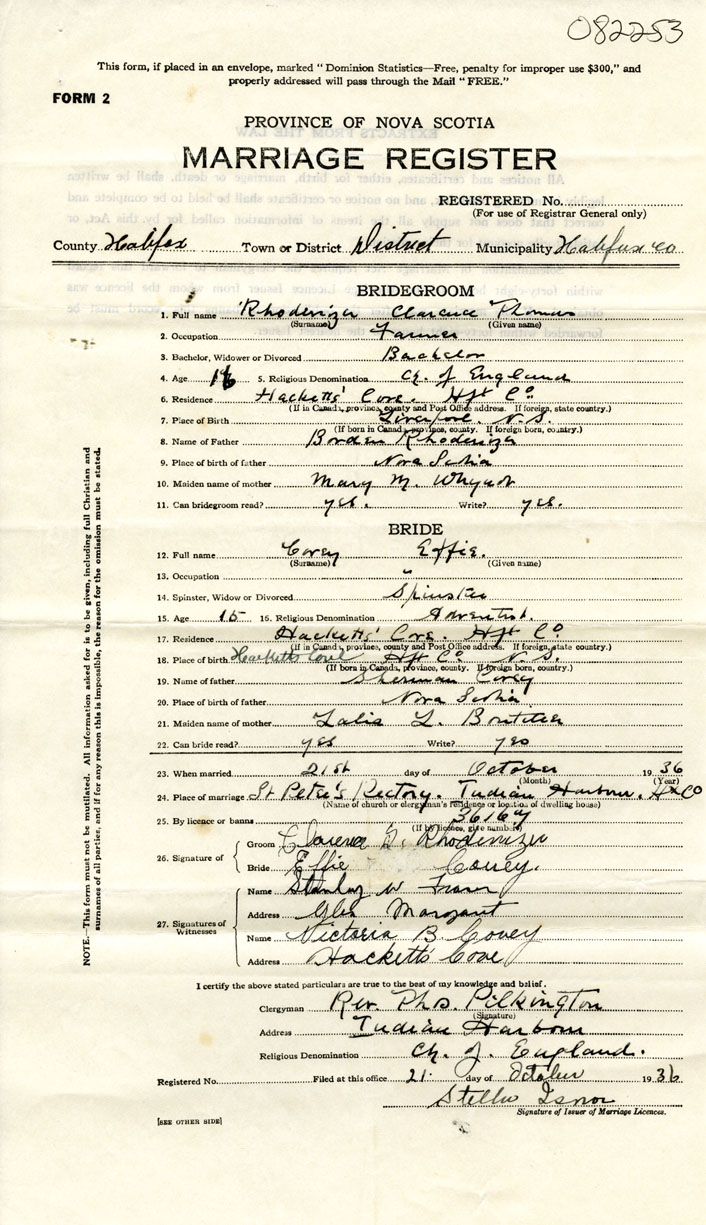 082253
This form, if placed in an envelope, marked "Dominion Statistics—Free, penalty for improper use $300," and
properly addressed will pass through the Mail "FREE."
FORM 2
PROVINCE OF NOVA SCOTIA
MARRIAGE REGISTER
REGISTERED No.
(For use of Registrar General only)
County Halifax Town or District District Municipality Halifax Co
BRIDEGROOM
1. Full name Rhodenizer Clarence Thomas
(Surname) (Given name)
2. Occupation Farmer
3. Bachelor, Widower or Divorced Bachelor
4. Age 5. Religious Denomination Ch. of England
6. Residence Hacketts' Cove. Hfx Co
(If in Canada, province, county and Post Office address. If foreign, state country.)
7. Place of Birth Liverpool. N.S.
(If born in Canada, province, county. If foreign born, country.)
8. Name of Father Borden Rhodenizer
9. Place of birth of father Nova Scotia
10. Maiden name of mother Mary M. Whynot
11. Can bridegroom read? yes. Write? yes.
BRIDE
12. Full name Covey Effie.
(Surname) (Given name)
13. Occupation "
14. Spinster, Widow or Divorced Spinster
15. Age 15 16. Religious Denomination Adventist.
17. Residence Hacketts' Cove. Hfx Co
(If in Canada, province, county and Post Office address. If foreign, state country.)
18. Place of birth Hacketts Cove Hfx Co. N.S.
(If born in Canada, province, county. If foreign born, country.)
19. Name of father Sherman Covey
20. Place of birth of father Nova Scotia
21. Maiden name of mother L. Boutilier
22. Can bride read? yes Write? yes
23. When married 21st day of October 1936
(Month) (Year)
24. Place of marriage St Peter's Rectory. Indian Harbour. Hfx Co
(Name of church or clergyman's residence or location of dwelling house)
25. By licence or banns
(If by licence, give number)
26. Signature of
Groom Clarence T. Rhodenizer
Bride Effie Covey.
27. Signatures of Witnesses
Name Stanley W
Address Glen Margaret
Name Victoria B. Covey
Address Hacketts Cove
I certify the above stated particulars are true to the best of my knowledge and belief.
Clergyman Rev. Thos. Pilkington
(Signature)
Address Indian Harbour
Religious Denomination Ch. of England.
Registered No. Filed at this office 21. day of October 1936
Stella Isnor
Signature of Issuer of Marriage Licences.
[SEE OTHER SIDE]
NOTE.—This form must not be mutilated. All information asked for is to be given, including full Christian and
surnames of all parties, and if for any reason this is impossible, the reason for the omission must be stated.